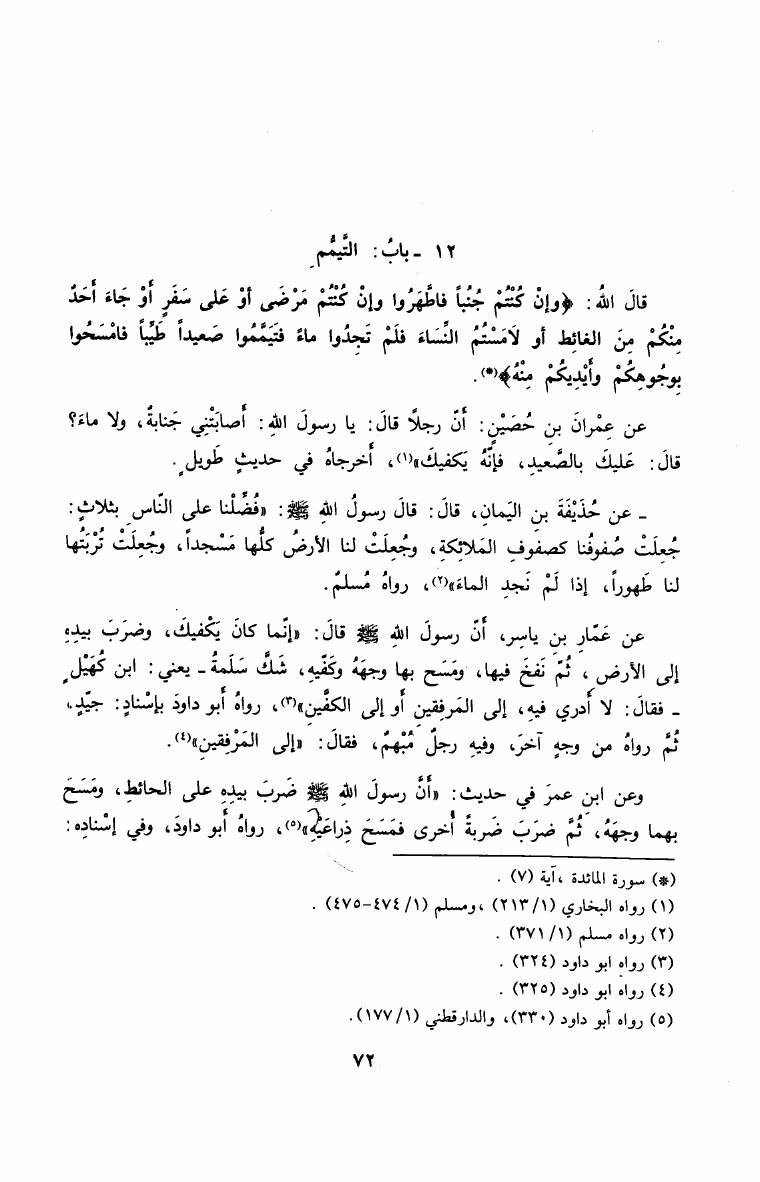 ١٢ - بابُ: التَّيمُّمِ
قالَ اللهُ: ﴿وإنْ كُنْتُمْ جُنُباً فاطَّهَرُوا وإنْ كُنْتُمْ مَرْضَى أوْ عَلى سَفَرٍ أَوْ جَاءَ أَحَدٌ
مِنْكُمْ مِنَ الغائِط أو لَامَسْتُمُ النِّسَاءَ فَلَمْ تَجِدُوا ماءً فتَيَمَّمُوا صَعيداً طَيِّباً فامْسَحُوا
بِوجُوهِكُمْ وأَيْدِيكُمْ مِنْهُ﴾(*).
عن عِمْرانَ بنِ حُصَيْنٍ: أَنّ رجلًا قالَ: يا رسولَ اللهِ: أَصابَتْنِي جَنابةٌ، ولا ماءَ؟
قالَ: عَليكَ بالصَّعيدِ، فإنَّهُ يَكفيكَ»(١)، أَخرجاهُ في حديثٍ طَويلٍ.
- عن حُذَيْفَةَ بنِ اليَمانِ، قالَ: قالَ رسولُ اللهِ ﷺ: «فُضِّلْنا على النّاسِ بثلاثٍ:
جُعِلَتْ صُفوفُنا كصفوفِ المَلائِكةِ، وجُعِلَتْ لنا الأرضُ كلُّها مَسْجداً، وجُعِلَتْ تُرْبَتُها
لنا طَهوراً، إذا لَمْ نَجدِ الماءَ»(٢)، رواهُ مُسلمٌ.
عن عَمّارِ بنِ ياسِر، أَنّ رسولَ اللهِ ﷺ قالَ: «إنّما كانَ يَكْفيكَ، وضرَبَ بيدِهِ
إلى الأرضِ، ثُمّ نَفخَ فيها، ومَسَح بها وجهَهُ وكَفّيهِ، شَكَّ سَلَمةُ - يعني: ابن كُهَيْلٍ
- فقالَ: لا أَدري فيهِ، إلى المَرفِقينِ أَو إلى الكفَّينِ»(٣)، رواهُ أَبو داودَ بإسْنادٍ: جيّدٍ،
ثُمَّ رواهُ من وجهٍ آخرَ، وفيهِ رجلٌ مُبْهمٌ، فقالَ: «إلى المَرْفِقينِ»(٤).
وعن ابنِ عمرَ في حديث: «أَنَّ رسولَ اللهِ ﷺ ضَربَ بيدِهِ على الحائطِ، ومَسَحَ
بهما وجهَهُ، ثُمَّ ضرَبَ ضَربةً أُخرى فمَسَحَ ذِراعَيْهِ»(٥)، رواهُ أَبو داودَ، وفي إسْنادِه:
(*) سورة المائدة ،آية (٧) .
(١) رواه البخاري (٢١٣/١) ،ومسلم (٤٧٤/١-٤٧٥) .
(٢) رواه مسلم (٣٧١/١) .
(٣) رواه ابو داود (٣٢٤) .
(٤) رواه ابو داود (٣٢٥) .
(٥) رواه أبو داود (٣٣٠)، والدارقطني (١٧٧/١).
٧٢